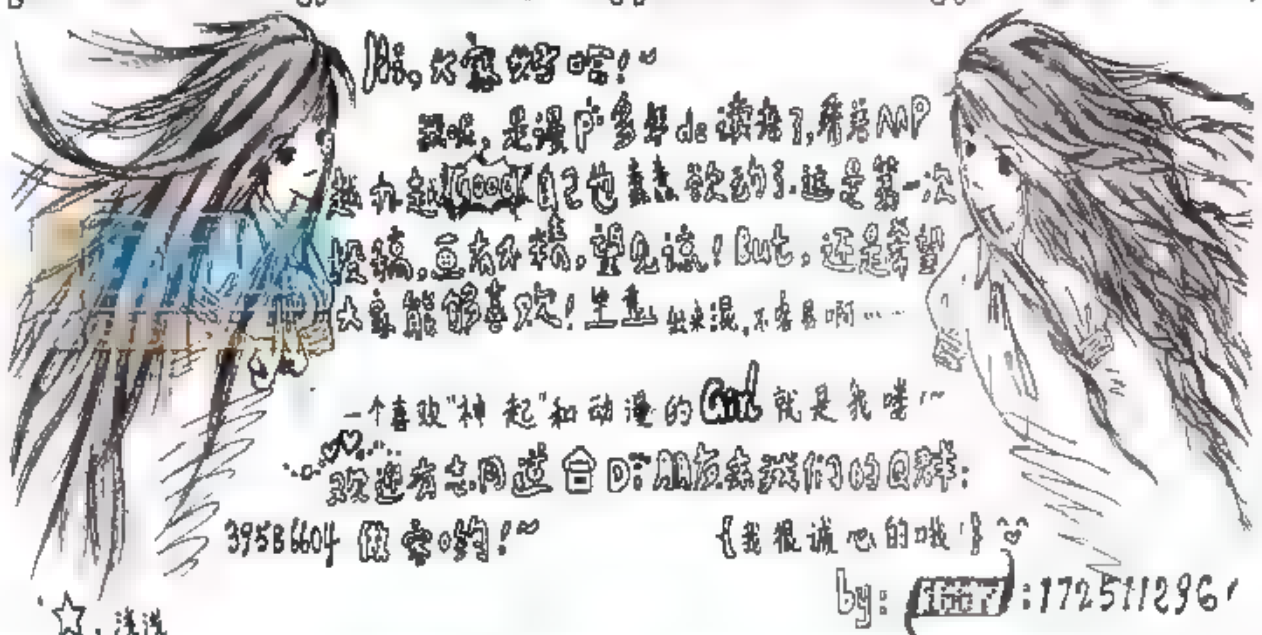 Hi,大家好哈!~
是漫P多年de读者了,看着MP
越办越Good自己也蠢蠢欲动了.这是第一次
投稿,画技不精,望见谅!But,还是希望
大家能够喜欢!生意 出来混,不容易啊……
一个喜欢"神起"和动漫的Girl就是我喽~
欢迎有志同道合D:朋友来我们的Q群:
39586604 做客哟!~
{我很诚心的哦!}
by: :1725112961